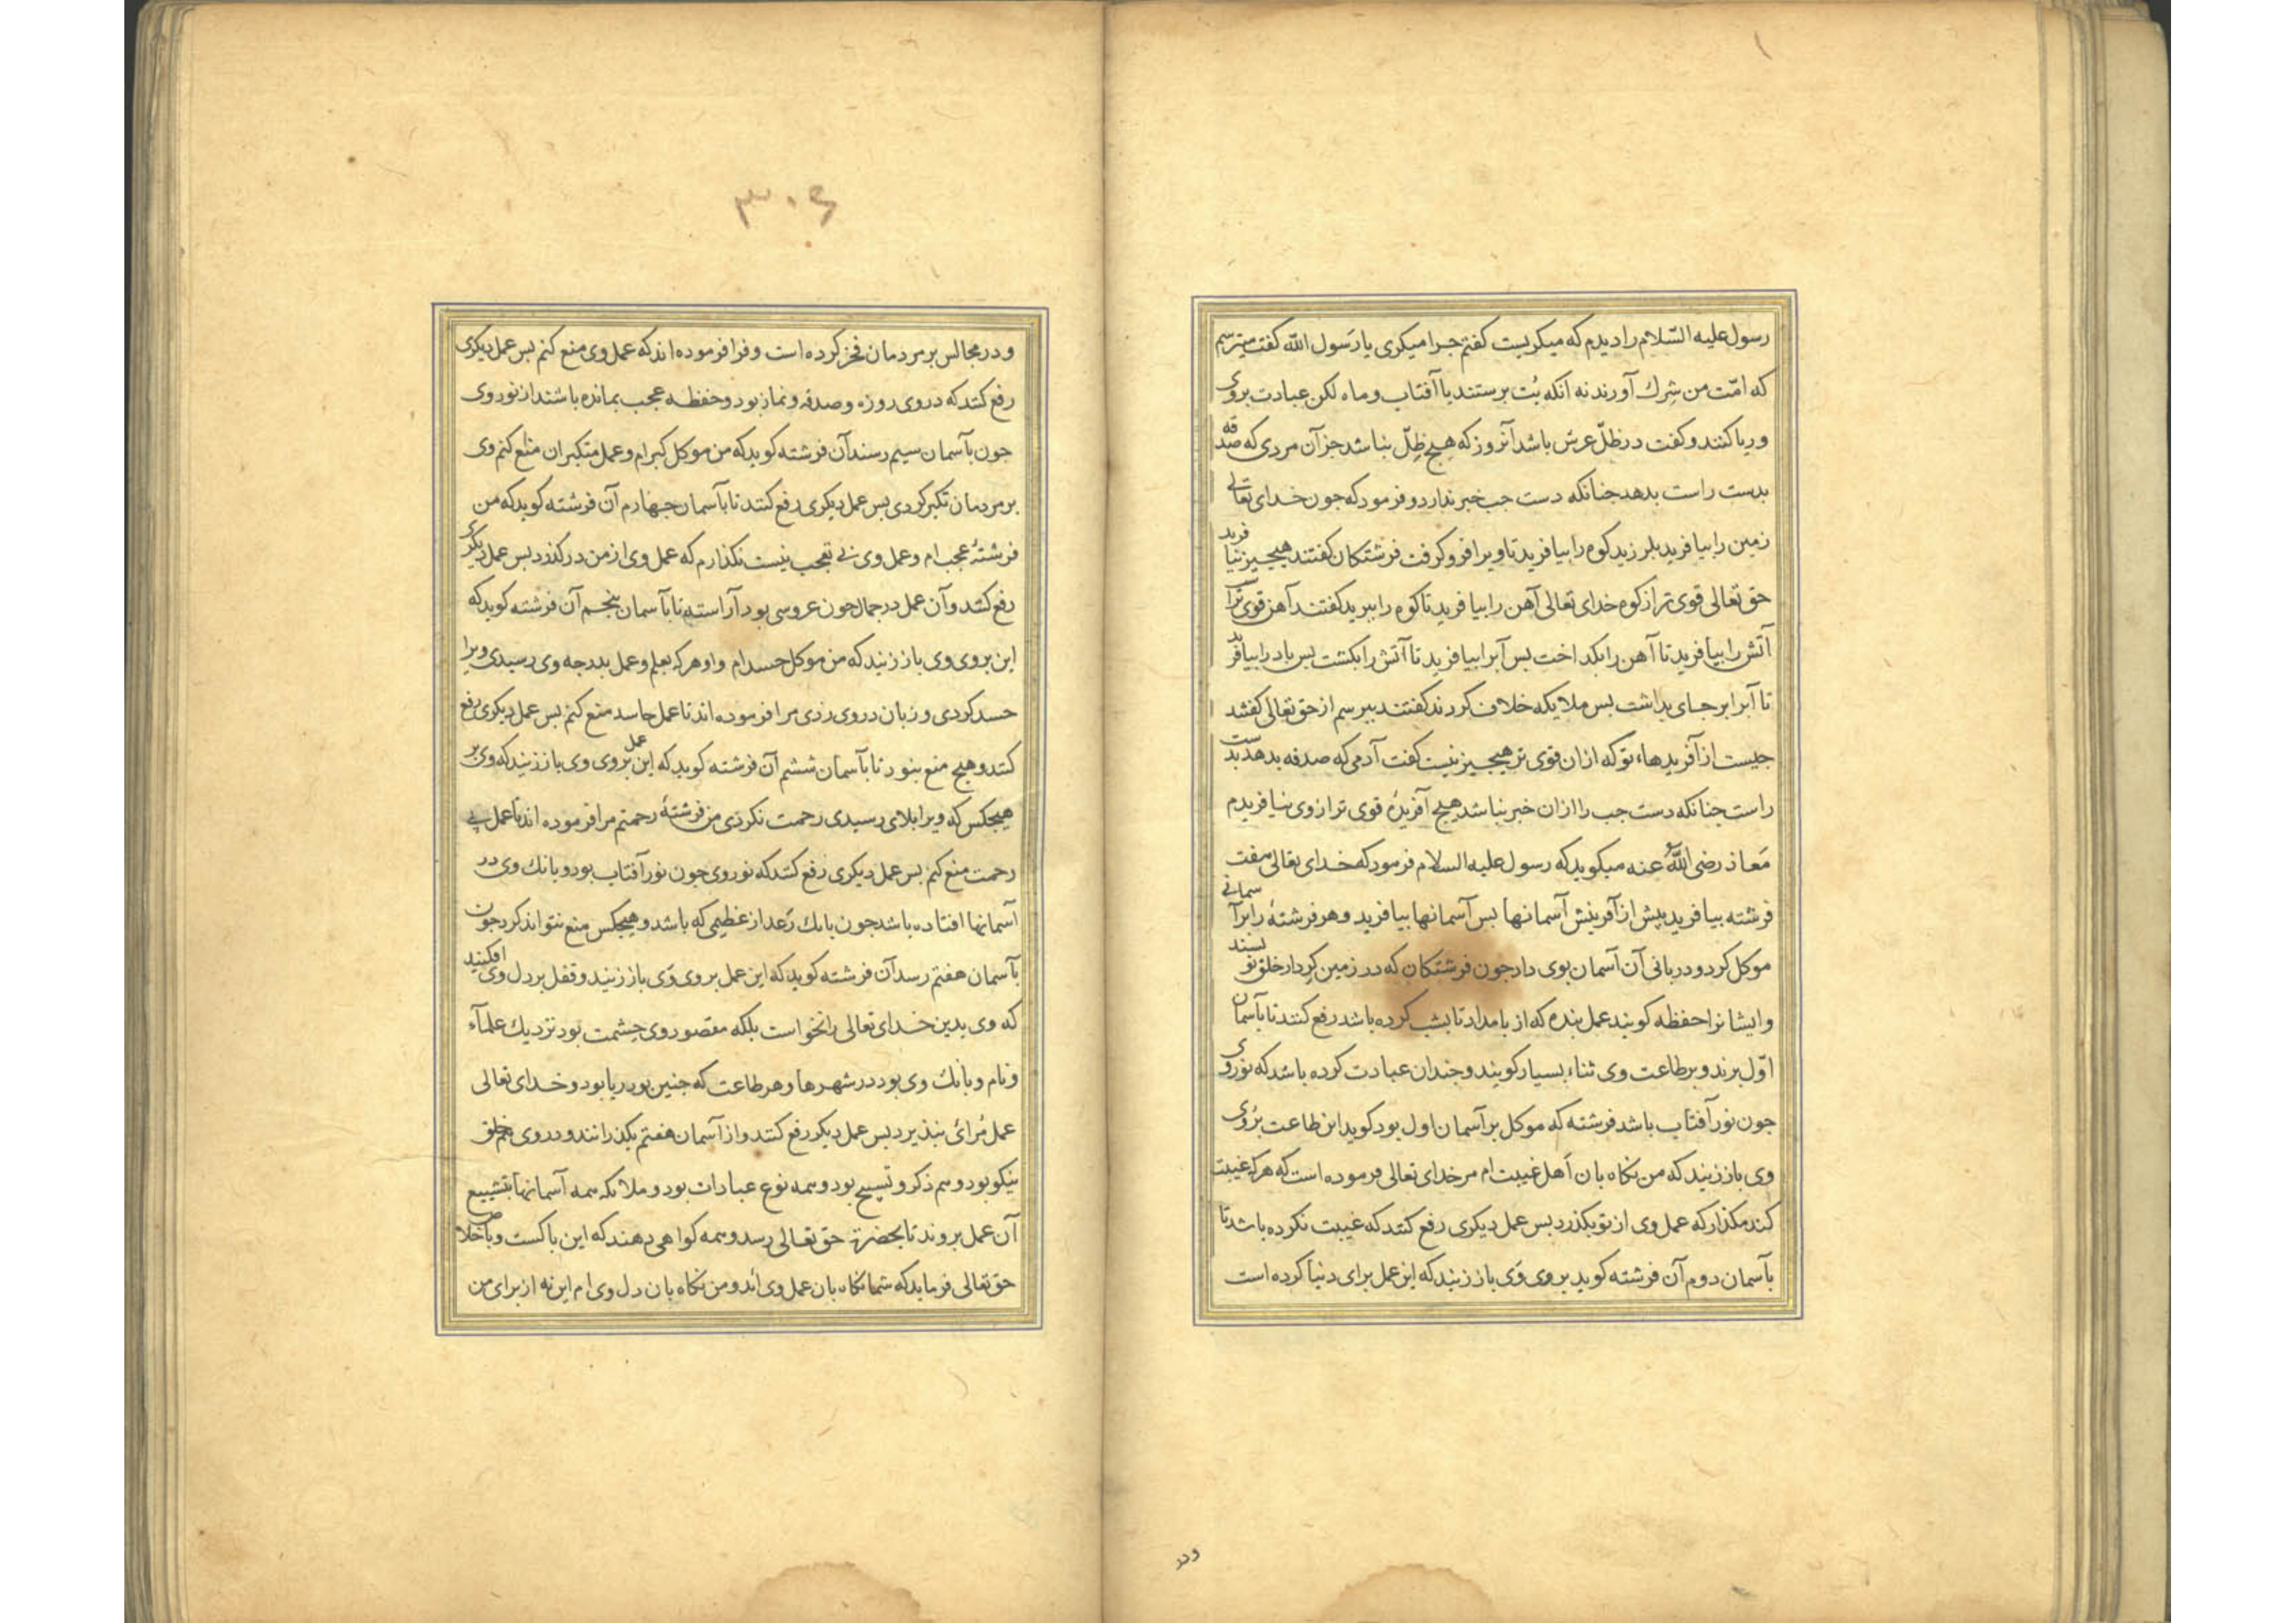 رسول علیه السّلام را دیدم که میکریست کفتم جرا میکری یا رَسول الله کفت میترسم
که امّت من شِرك آورند نه آنکه بُت برستند یا آفتاب و ماه لکن عبادت بروی
و ریا کنند و کفت در ظلّ عرش باشد آنروز که هیچ ظِلّ نباشد جز آن مردی که صدقه
بدست راست بدهد جنانکه دست جب خبر ندارد و فرمود که جون خدای تعالی
زمین را بیافرید بلرزید کوه را بیافرید تا ویرا فرو کرفت فرشتکان کفتند هیچیز نیافرید
حق تعالی قوی تر از کوه خدای تعالی آهن را بیافرید تا کوه را ببرید کفتند آهن قوی تر است
آتش را بیافرید تا آهن را بکداخت بس آبرا بیافرید تا آتش را بکشت بس باد را بیافرید
تا آبرا بر جای بداشت بس ملایکه خلاف کردند کفتند ببرسم از حق تعالی کفتند
جیست از آفریدهاء تو که ازان قوی تر هیچیز نیست کفت آدمی که صدقه بدهد بدست
راست جنانکه دست جب را ازان خبر نباشد هیچ آفریدۀ قوی تر ازوی نیافریدم
مَعاذ رضی اللّٰهُ عنه میکوید که رسول علیه السلام فرمود که خدای تعالی هفت
فرشته بیافرید پیش از آفرینش آسمانها بس آسمانها بیافرید و هر فرشتۀ را بر آسمانی
موکل کرد و دربانی آن آسمان بوی داد جون فرشتکان که در زمین کردار خلق نویسند
و ایشانرا حفظه کویند عمل بنده که از بامداد تا بشب کرده باشد رفع کنند تا بآسمان
اوّل برند و بر طاعت وی ثناء بسیار کویند و جندان عبادت کرده باشد که نور وی
جون نور آفتاب باشد فرشته که موکل بر آسمان اول بود کوید این طاعت برُوی
وی باز زنید که من نکاه بان اَهل غیبت ام مر خدای تعالی فرموده است که هرکه غیبت
کند مکذار که عمل وی از تو بکذرد بس عمل دیکری رفع کنند که غیبت نکرده باشد تا
بآسمان دوم آن فرشته کوید بروی وَی باز زنید که این عمل برای دنیا کرده است
ودر
۳۰۶
و در مجالس بر مردمان فخر کرده است و فرا فرموده اند که عمل وی منع کنم بس عمل دیکری
رفع کنند که در وی روزه و صدقه و نماز بود و حفظه عجب بمانده باشند از نور وی
جون بآسمان سیم رسند آن فرشته کوید که من موکل کبرام و عمل متکبران منع کنم وی
بر مردمان تکبر کردی بس عمل دیکری رفع کنند تا بآسمان جهارم آن فرشته کوید که من
فرشتۀ عجب ام و عمل وی بی تعجب نیست نکذارم که عمل وی از من درکذرد بس عمل دیکری
رفع کنند و آن عمل در جمال جون عروسی بود آراسته تا بآسمان پنجم آن فرشته کوید که
این بروی وی باز زنید که من موکل حسدام و او هرکه بعلم و عمل بدرجه وی رسیدی ویرا
حسد کردی و زبان در وی زدی مرا فرموده اند تا عمل حاسد منع کنم بس عمل دیکری رفع
کنند و هیچ منع نبود تا بآسمان ششم آن فرشته کوید که این عمل بروی وی باز زنید که وی بر
هیچکس که ویرا بلای رسیدی رحمت نکردی من فرشتۀ رحمتم مرا فرموده اند تا عمل بی
رحمت منع کنم بس عمل دیکری رفع کنند که نور وی جون نور آفتاب بود و بانك وی در
آسمانها افتاده باشد جون بانك رَعد از عظیمی که باشد و هیچکس منع نتواند کرد جون
بآسمان هفتم رسد آن فرشته کوید که این عمل بروی وَی باز زنید و قفل بر دل وی افکنید
که وی بدین خدای تعالی را نخواست بلکه مقصور وی حشمت بود نزدیك علمآء
و نام و بانك وی بود در شهرها و هر طاعت که جنین بود ریا بود و خدای تعالی
عمل مُرائی نبذیرد بس عمل دیکر رفع کنند و از آسمان هفتم بکذرانند و در وی همه خلق
نیکو بود و هم ذکر و تسبیح بود و همه نوع عبادات بود و ملائکه همه آسمانها بتشییع
آن عمل بروند تا بحضرت حق تعالی رسد و همه کواهی دهند که این باکست و باخلاص
حق تعالی فرماید که شما نکاه بان عمل وی اَید و من نکاه بان دل وی ام این نه از برای من